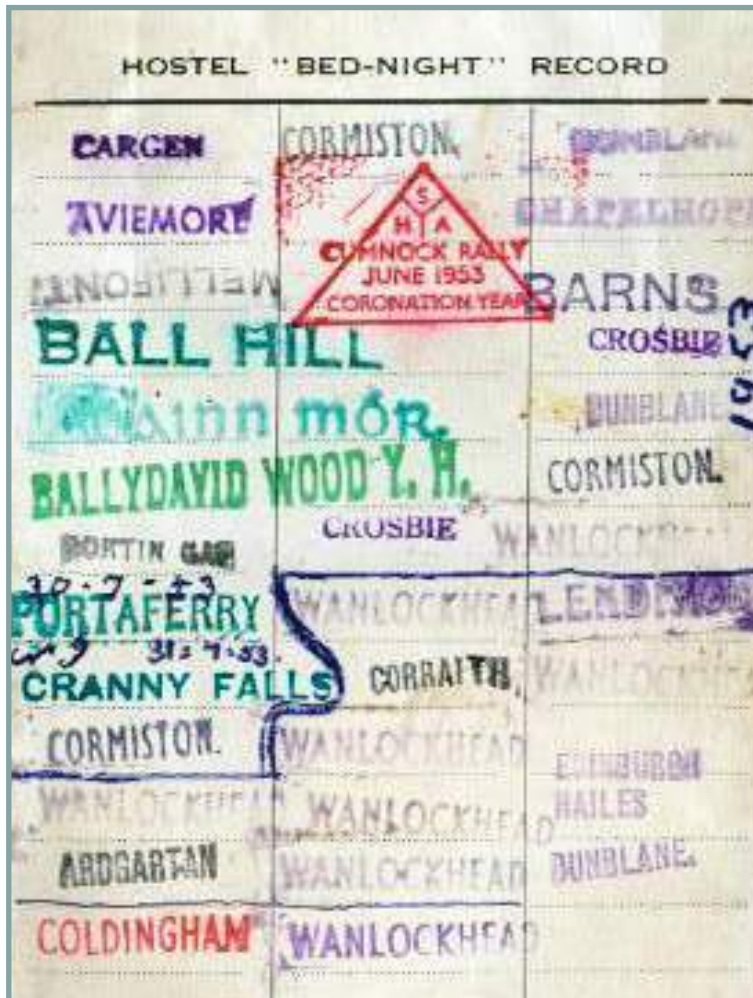 HOSTEL "BED-NIGHT" RECORD
CARGEN
AVIEMORE
MELLIFONT
BALL HILL
mór.
BALLYDAVID WOOD Y. H.
GORTIN GAP
30-7-53
PORTAFERRY
31-7-53.
CRANNY FALLS
CORMISTON.
WANLOCKHEAD
ARDGARTAN
COLDINGHAM
CORMISTON.
S
H A
CUMNOCK RALLY
JUNE 1953
CORONATION YEAR
CROSBIE
WANLOCKHEAD
CORRAITH.
WANLOCKHEAD
WANLOCKHEAD
WANLOCKHEAD
WANLOCKHEAD
DUNBLANE
CHAPELHOPE
BARNS
CROSBIE
DUNBLANE
CORMISTON.
WANLOCKHEAD
WANLOCKHEAD
EDINBURGH
HAILES
DUNBLANE.